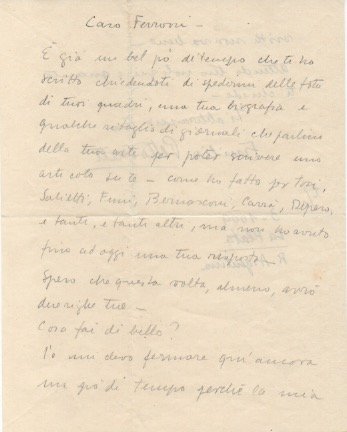 Caro Ferroni –
È già un bel pò di tempo che te ho
scritto chiedendoti di spedirmi delle foto
di tuoi quadri, una tua biografia e
qualche ritaglio di giornali che parlino
della tua arte per poter scrivere uno
articolo su te – come ho fatto per Tosi,
Salietti, Funi, Bernasconi, Carrà, Depero,
e tanti, e tanti altri, ma non ho avuto
fino ad oggi una tua risposta.
Spero che questa volta, almeno, avrò
due righe tue –
Cosa fai di bello?
Io mi devo fermare qui ancora
un pò di tempo perchè la mia